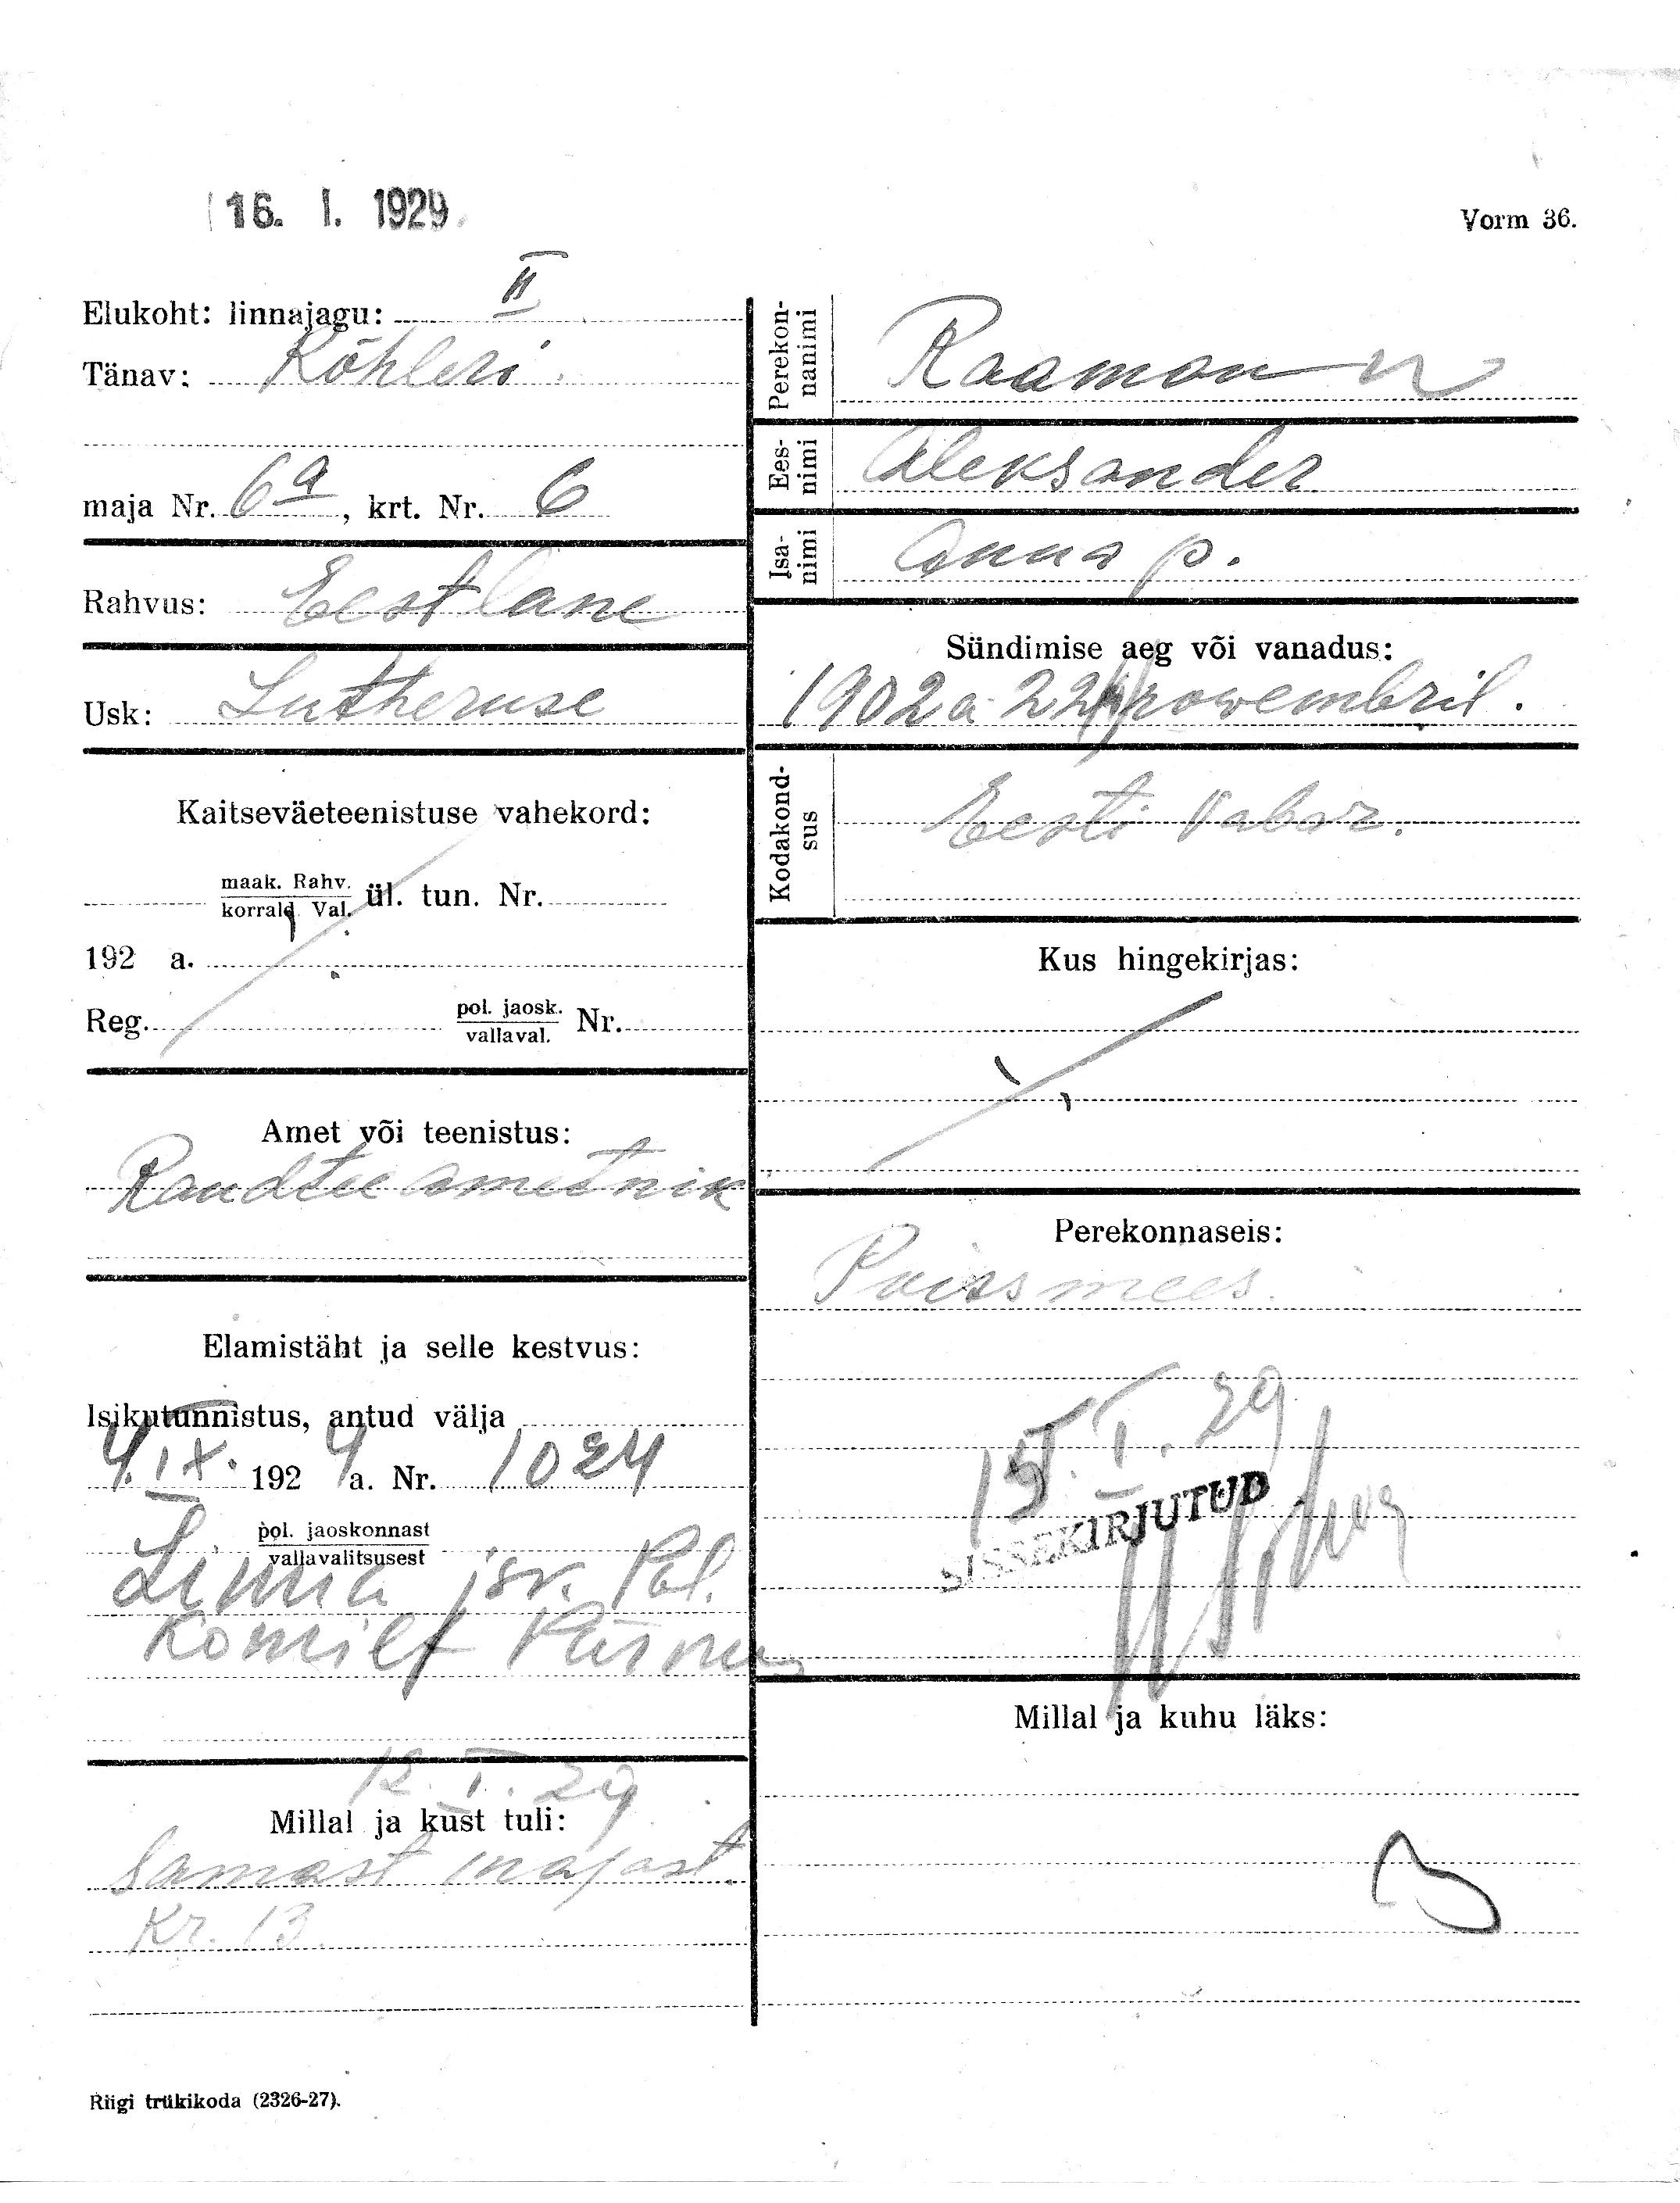 16. I. 1929
Vorm 36.
Elukoht: linnajagu: II
Tänav: Kõhleri
maja Nr. 6a, krt. Nr. 6
Rahvus: Eestlane
Usk: Lutheruse
Kaitseväeteenistuse vahekord:
maak. Rahv.
korrald. Val. ül. tun. Nr.
192 a.
Reg. pol. jaosk.
vallaval. Nr.
Amet või teenistus:
Raudtee ametnik
Elamistäht ja selle kestvus:
Isikutunnistus, antud välja
4. IX. 1924 a. Nr. 1024
pol. jaoskonnast
vallavalitsusest
Linna jsk. Pol.
Pärnu
12. I. 29
Millal ja kust tuli:
Samast majast
Kr. 13.
Perekonnanimi
Raamann
Eesnimi
Aleksander
Isanimi
Anna p.
Sündimise aeg või vanadus:
1902 a 22 nowembril.
Kodakondsus
Eesti Vabar.
Kus hingekirjas:
Perekonnaseis:
Poissmees.
15. I. 29
SISSEKIRJUTUD
Millal ja kuhu läks:
Riigi trükikoda (2326-27).